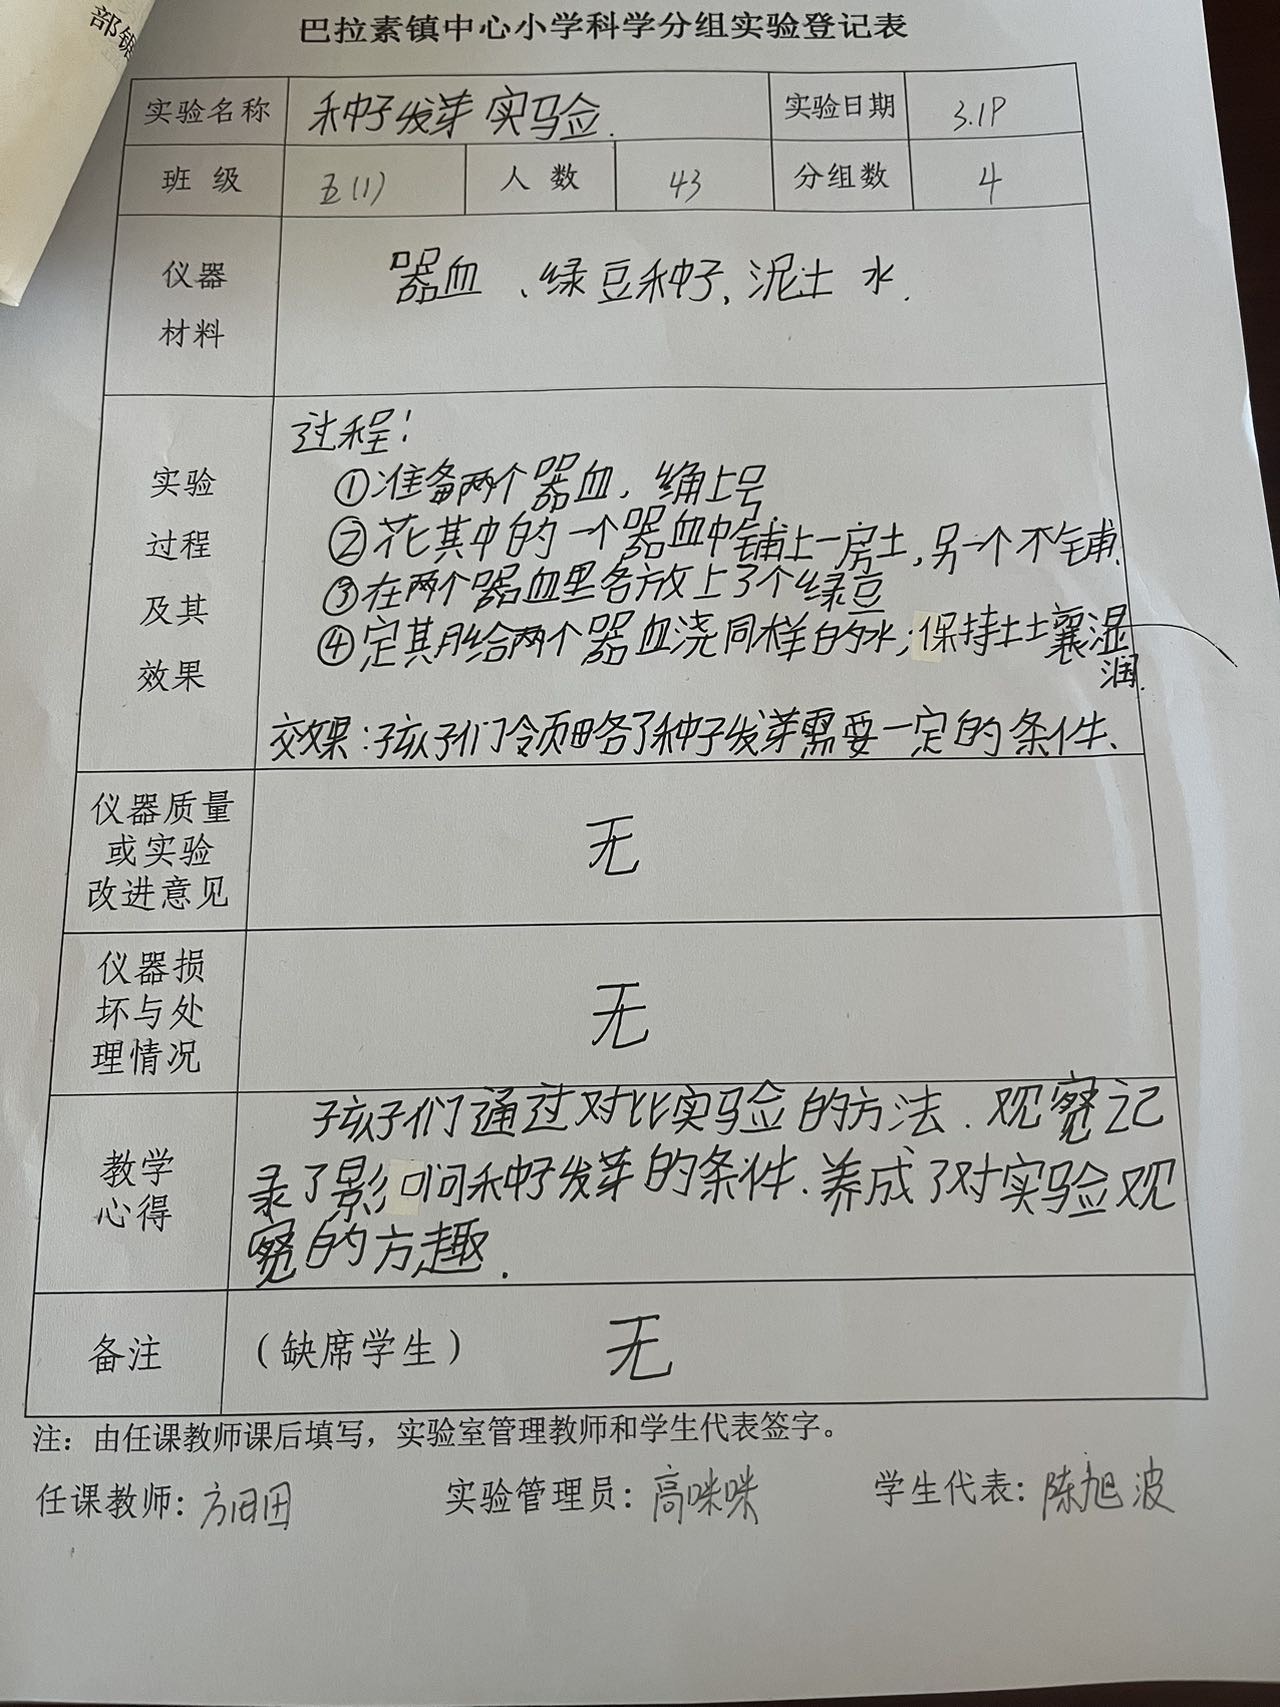 部镇
巴拉素镇中心小学科学分组实验登记表
实验名称 种子发芽实验. 实验日期 3.19
班级 五(1) 人数 43 分组数 4
仪器
材料
器血、绿豆种子、泥土 水.
实验
过程
及其
效果
过程:
①准备两个器血,编上号
②在其中的一个器血中铺上一房土,另一个不铺.
③在两个器血里各放上3个绿豆
④定期给两个器血浇同样的水,保持土壤湿
润.
效果:孩子们领略了种子发芽需要一定的条件、
仪器质量
或实验
改进意见
无
仪器损
坏与处
理情况
无
教学
心得
孩子们通过对比实验的方法.观察记
录了影响种子发芽的条件.养成了对实验观
察的方趣.
备注 (缺席学生) 无
注:由任课教师课后填写,实验室管理教师和学生代表签字。
任课教师:方田田 实验管理员:高咪咪 学生代表:陈旭波